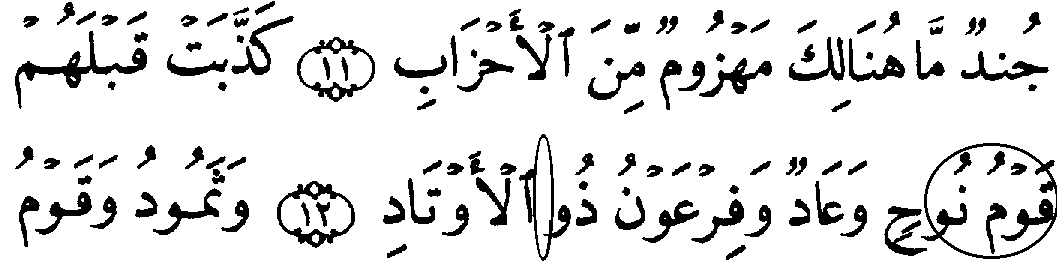 جُندٌ مَّا هُنَالِكَ مَهْزُومٌ مِّنَ ٱلْأَحْزَابِ ١١ كَذَّبَتْ قَبْلَهُمْ
قَوْمُ نُوحٍ وَعَادٌ وَفِرْعَوْنُ ذُو ٱلْأَوْتَادِ ١٢ وَثَمُودُ وَقَوْمُ